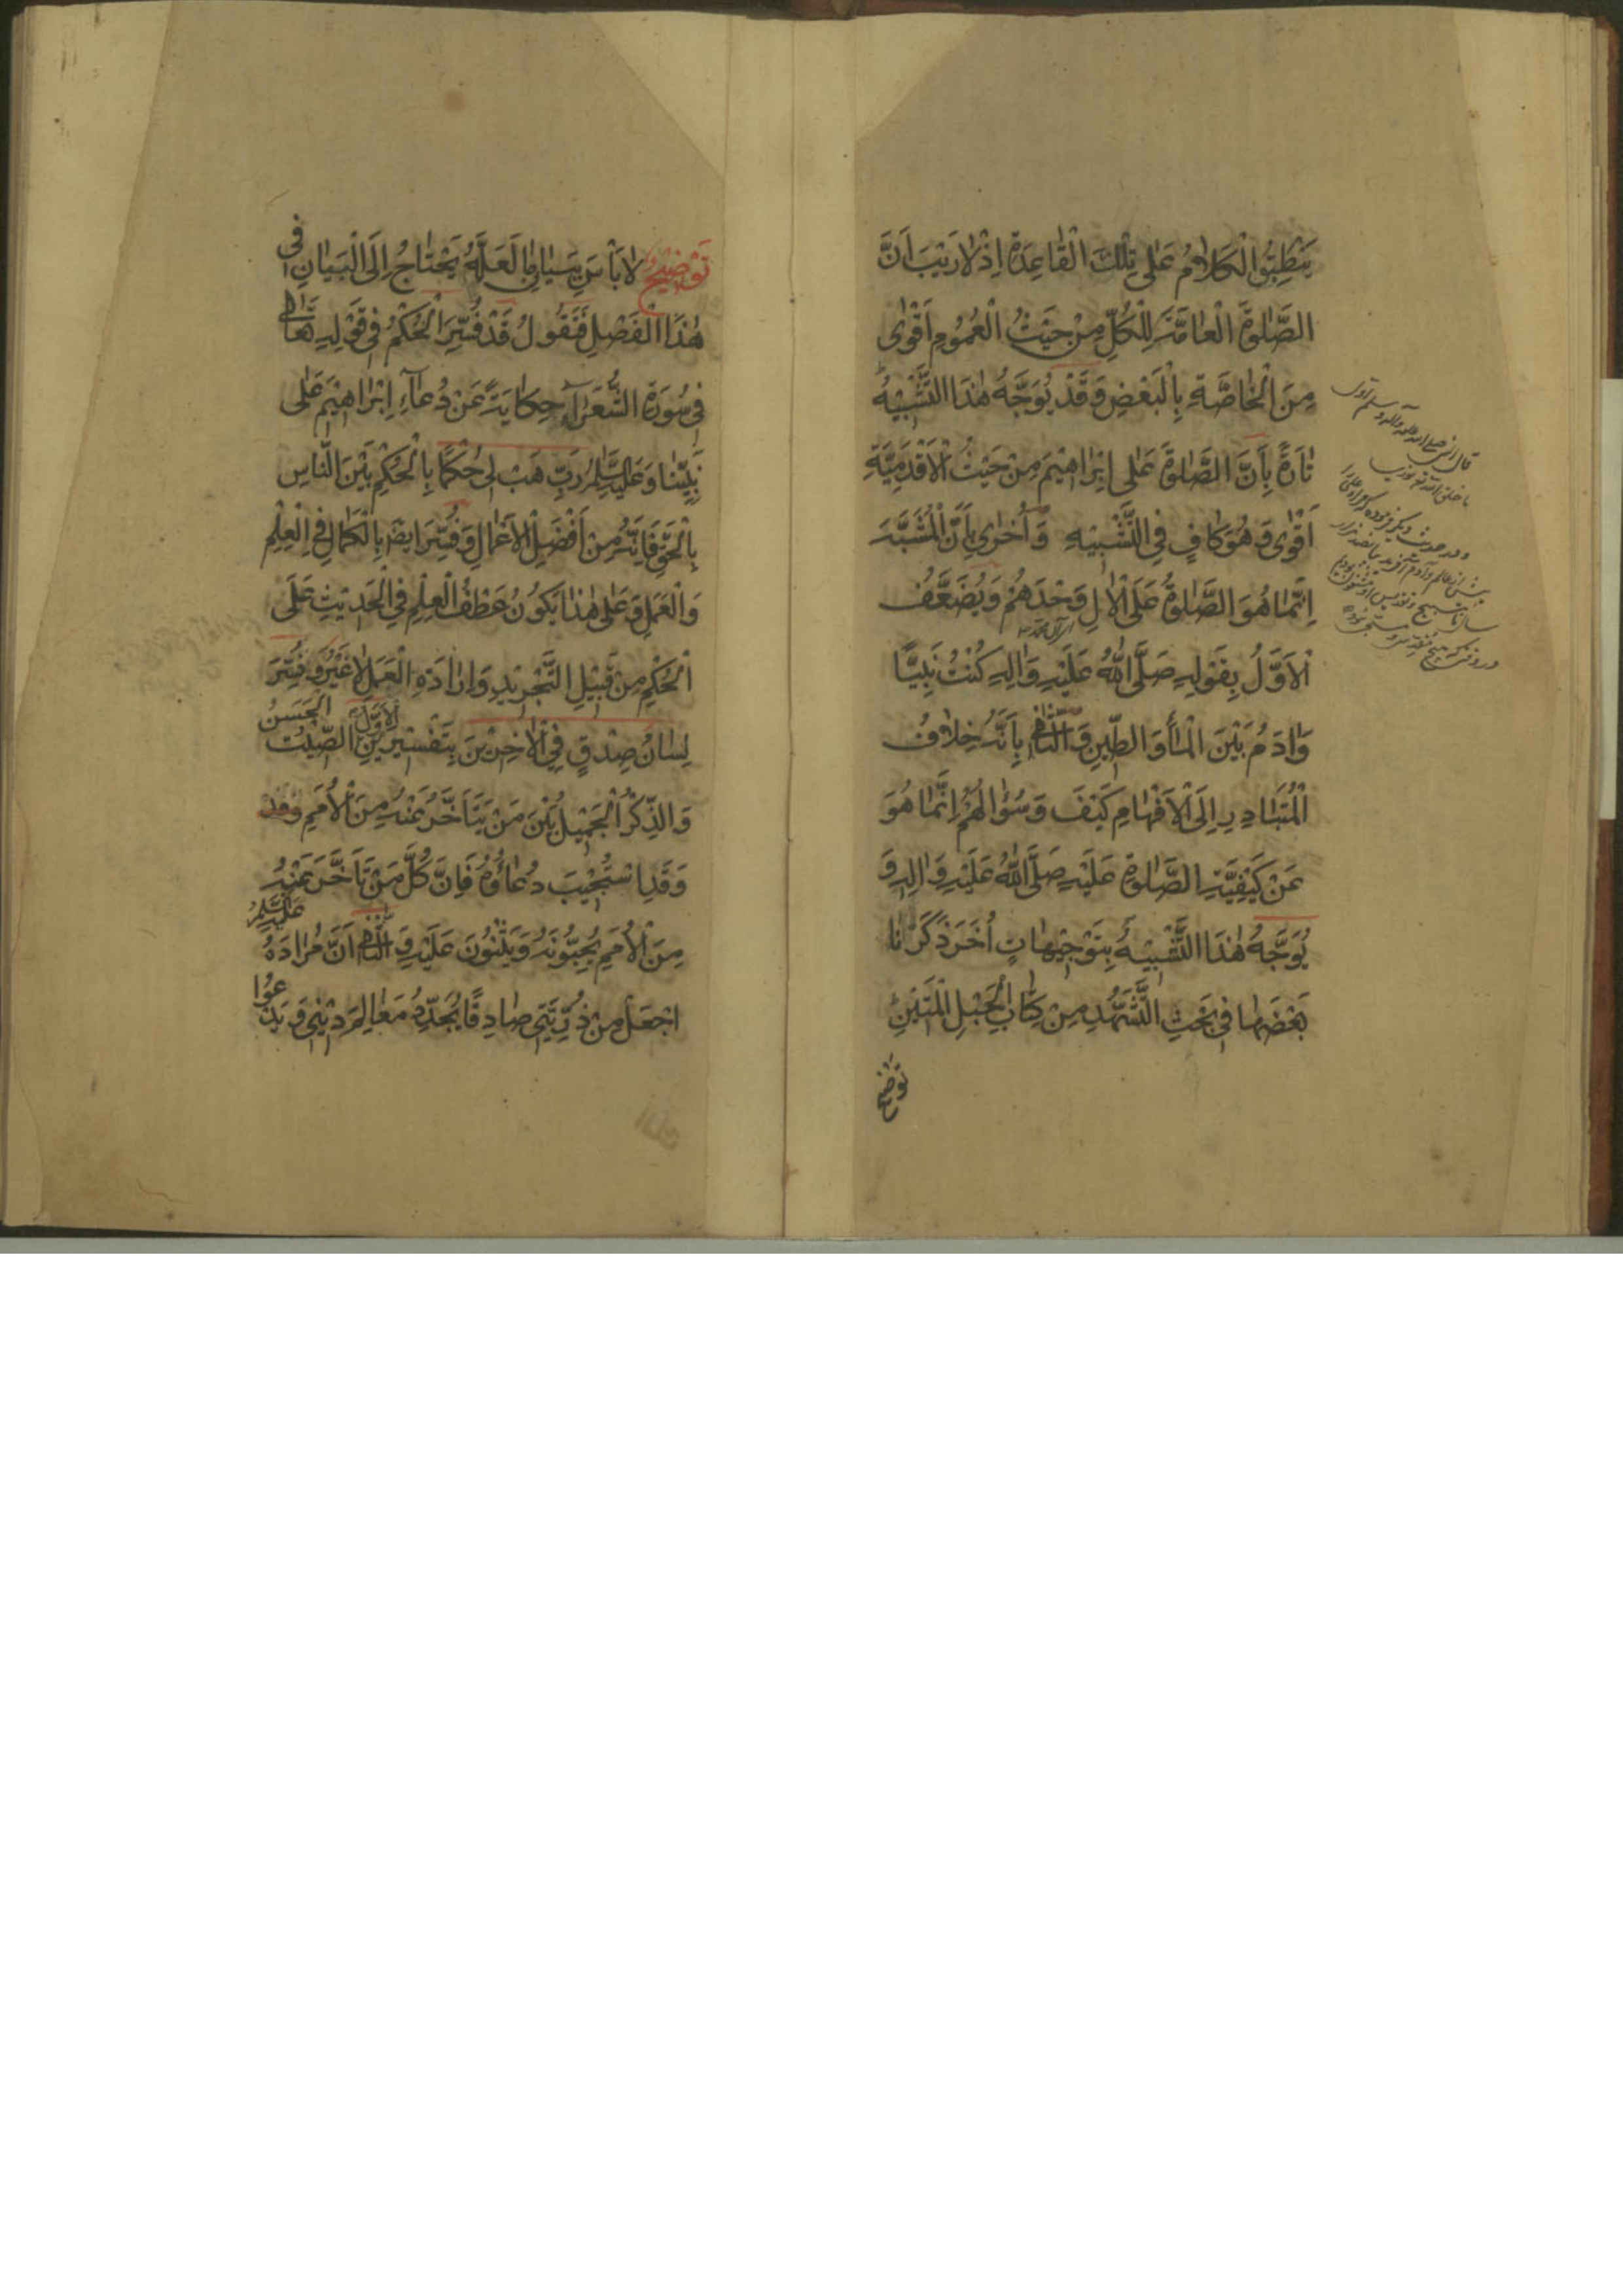 يَنْطَبِقُ الْكَلَامُ عَلٰى تِلْكَ الْقَاعِدَةِ اِذْ لَا رَيْبَ اَنَّ
الصَّلٰوةَ الْعَامَّةَ لِلْكُلِّ مِنْ حَيْثُ الْعُمُومِ اَقْوٰى
مِنَ الْخَاصَّةِ بِالْبَعْضِ وَقَدْ يُوَجَّهُ هٰذَا التَّشْبِيْهُ
تَارَةً بِاَنَّ الصَّلٰوةَ عَلٰى اِبْرَاهِيْمَ مِنْ حَيْثُ الْاَقْدَمِيَّةِ
اَقْوٰى وَهُوَ كَافٍ فِي التَّشْبِيْهِ وَاُخْرٰى بِاَنَّ الْمُشَبَّهَ
اِنَّمَا هُوَ الصَّلٰوةُ عَلَى الْاٰلِ وَحْدَهُمْ وَيُضَعَّفُ
الْاَوَّلُ بِقَوْلِهِ صَلَّى اللهُ عَلَيْهِ وَاٰلِهِ كُنْتُ نَبِيًّا
وَاٰدَمُ بَيْنَ الْمَاءِ وَالطِّيْنِ وَالثَّانِي بِاَنَّهُ خِلَافُ
الْمُتَبَادِرِ اِلَى الْاَفْهَامِ كَيْفَ وَسُؤَالُهُمْ اِنَّمَا هُوَ
عَنْ كَيْفِيَّةِ الصَّلٰوةِ عَلَيْهِ صَلَّى اللهُ عَلَيْهِ وَاٰلِهِ وَ
يُوَجَّهُ هٰذَا التَّشْبِيْهُ بِتَوْجِيْهَاتٍ اُخَرَ ذَكَرْنَا
بَعْضَهَا فِي بَحْثِ التَّشَهُّدِ مِنْ كِتَابِ الْحَبْلِ الْمَتِيْنِ
توضيح
قال النبي صلى الله عليه وآله وسلم اول
ما خلق الله نوري
تَوْضِيْحٌ لَا بَأْسَ بِبَيَانِ مَا لَعَلَّهُ يَحْتَاجُ اِلَى الْبَيَانِ فِي
هٰذَا الْفَصْلِ فَنَقُولُ قَدْ فُسِّرَ الْحُكْمُ فِي قَوْلِهِ تَعَالٰى
فِي سُورَةِ الشُّعَرَآءِ حِكَايَةً عَنْ دُعَآءِ اِبْرَاهِيْمَ عَلٰى
نَبِيِّنَا وَعَلَيْهِ السَّلَامُ رَبِّ هَبْ لِي حُكْمًا بِالْحُكْمِ بَيْنَ النَّاسِ
بِالْحَقِّ فَاِنَّهُ مِنْ اَفْضَلِ الْاَعْمَالِ وَفُسِّرَ اَيْضًا بِالْكَمَالِ فِي الْعِلْمِ
وَالْعَمَلِ وَعَلٰى هٰذَا يَكُونُ عَطْفُ الْعِلْمِ فِي الْحَدِيْثِ عَلَى
الْحُكْمِ مِنْ قَبِيْلِ التَّجْرِيْدِ وَاِرَادَةِ الْعَمَلِ لَا غَيْرُ وَفُسِّرَ
لِسَانُ صِدْقٍ فِي الْاٰخِرِيْنَ بِتَفْسِيْرَيْنِ الْاَوَّلُ الصِّيْتُ الْحَسَنُ
وَالذِّكْرُ الْجَمِيْلُ بَيْنَ مَنْ يَتَاَخَّرُ عَنْهُ مِنَ الْاُمَمِ وَقَدْ
وَقَدِ اسْتُجِيْبَ دُعَاؤُهُ فَاِنَّ كُلَّ مَنْ تَاَخَّرَ عَنْهُ
مِنَ الْاُمَمِ يُحِبُّونَهُ وَيُثْنُونَ عَلَيْهِ وَالثَّانِي اَنَّ مُرَادَهُ عَلَيْهِ السَّلَامُ
اِجْعَلْ مِنْ ذُرِّيَّتِي صَادِقًا يُجَدِّدُ مَعَالِمَ دِيْنِي وَيَدْعُوا